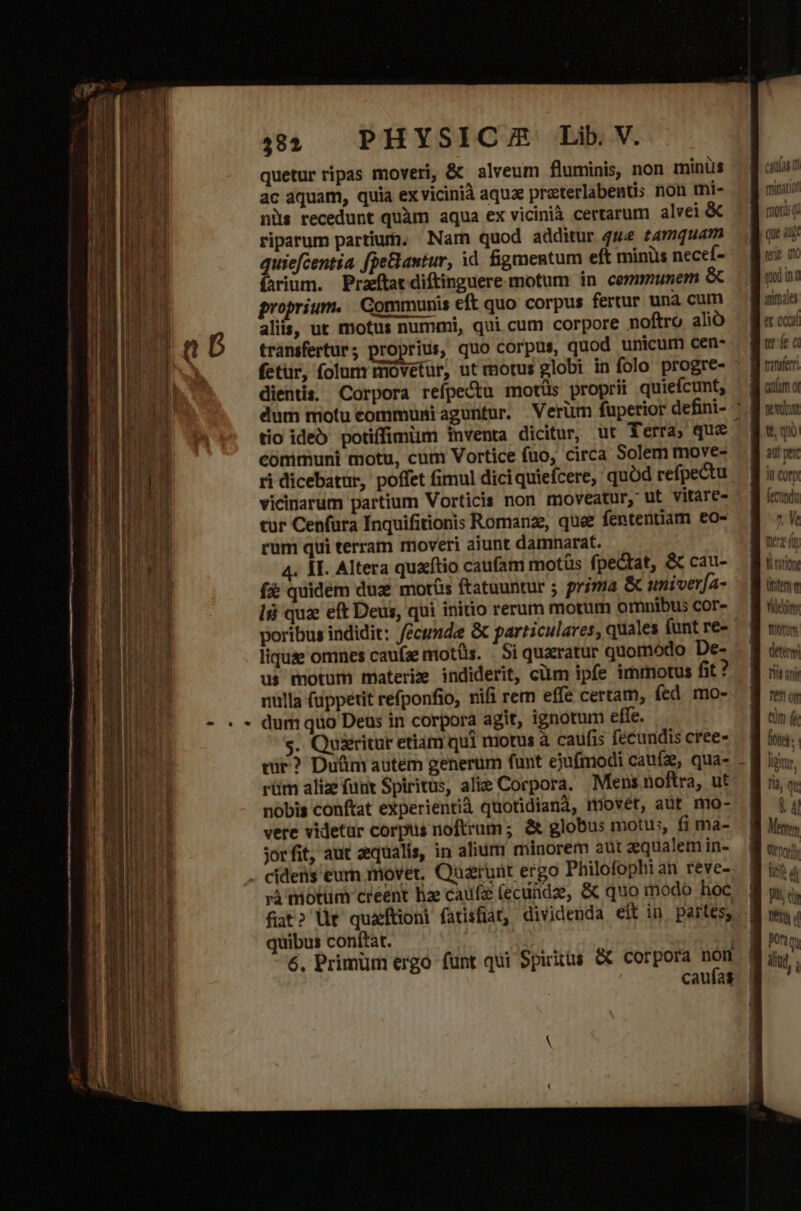 382 PHYSICÆ Lib. V.
quetur ripas moveri, & alveum fluminis, non minùs
ac aquam, quia ex viciniâ aquæ præterlabentis non mi-
nùs recedunt quàm aqua ex viciniâ certarum alvei &
riparum partium. Nam quod additur quæ tamquam
quieſcentia ſpectantur, id figmentum eſt minùs neceſ-
ſarium. Præſtat diſtinguere motum in communem &
proprium. Communis eſt quo corpus fertur unà cum
aliis, ut motus nummi, qui cum corpore noſtro aliò
transfertur; proprius, quo corpus, quod unicum cen-
ſetur, ſolum movetur, ut motus globi in ſolo progre-
dientis. Corpora reſpectu motûs proprii quieſcunt,
dum motu communi aguntur. Verùm ſuperior defini-
tio ideò potiſſimùm inventa dicitur, ut Terra, quæ
communi motu, cum Vortice ſuo, circa Solem move-
ri dicebatur, poſſet ſimul dici quieſcere, quòd reſpectu
vicinarum partium Vorticis non moveatur, ut vitare-
tur Cenſura Inquiſitionis Romanæ, quæ ſententiam eo-
rum qui terram moveri aiunt damnarat.
4. II. Altera quæſtio cauſam motûs ſpectat, & cau-
ſæ quidem duæ motûs ſtatuuntur; prima & univerſa-
lis quæ eſt Deus, qui initio rerum motum omnibus cor-
poribus indidit: ſecundæ & particulares, quales ſunt re-
liquæ omnes cauſæ motûs. Si quæratur quomodo De-
us motum materiæ indiderit, cùm ipſe immotus ſit?
nulla ſuppetit reſponſio, niſi rem eſſe certam, ſed mo-
dum quo Deus in corpora agit, ignotum eſſe.
5. Quæritur etiam quî motus à cauſis ſecundis cree-
tur? Duûm autem generum ſunt ejuſmodi cauſæ, qua-
rum aliæ ſunt Spiritus, aliæ Corpora. Mens noſtra, ut
nobis conſtat experientiâ quotidianâ, movet, aut mo-
vere videtur corpus noſtrum; & globus motus, ſi ma-
jor ſit, aut æqualis, in alium minorem aut æqualem in-
cidens eum movet. Quærunt ergo Philoſophi an reve-
rà motum creent hæ cauſæ ſecundæ, & quo modo hoc
fiat? Ut quæſtioni ſatisfiat, dividenda eſt in partes,
quibus conſtat.
6. Primùm ergo ſunt qui Spiritus & corpora non
cauſas